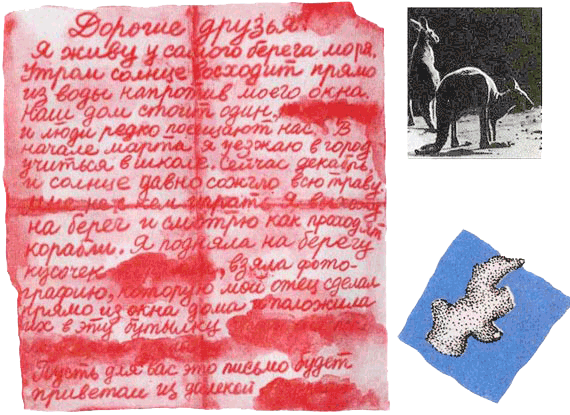 Дорогие друзья!
Я живу у самого берега моря.
Утром солнце восходит прямо
из воды напротив моего окна.
Наш дом стоит один,
и люди редко посещают нас. В
начале марта я уезжаю в город
учиться в школе. Сейчас декабрь
и солнце давно сожгло всю траву.
Мне не с кем играть. Я выхожу
на берег и смотрю как проходят
корабли. Я подняла на берегу
кусочек взяла фото-
графию, которую мой отец сделал
прямо из окна дома, и положила
их в эту бутылку
Пусть для вас это письмо будет
приветом из далекой